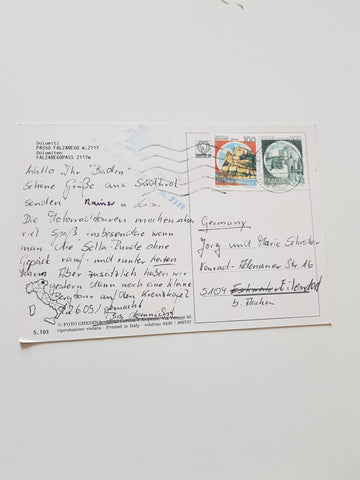 Dolomiti
PASSO FALZAREGO m. 2117
Dolomiten
FALZAREGOPASS 2117m
Hallo Ihr "Baden"
Schöne Grüße aus Südtirol
senden Rainer u.
Die Motorradtouren machen schon
viel Spaß, insbesondere wenn
man "die" Sella Runde ohne
Gepäck rauf- und runter
kann. Aber zusätzlich haben wir
gestern dann noch eine kleine
Bergtour auf den Kreuzkogel
gemacht
Bis demnächst
5.103
© FOTO GHEDINA
riproduzione vietata - Printed in Italy - telefono
100
Germany
Jörg und Maria Schröder
Str. 16
5104 Eilendorf
b. Aachen